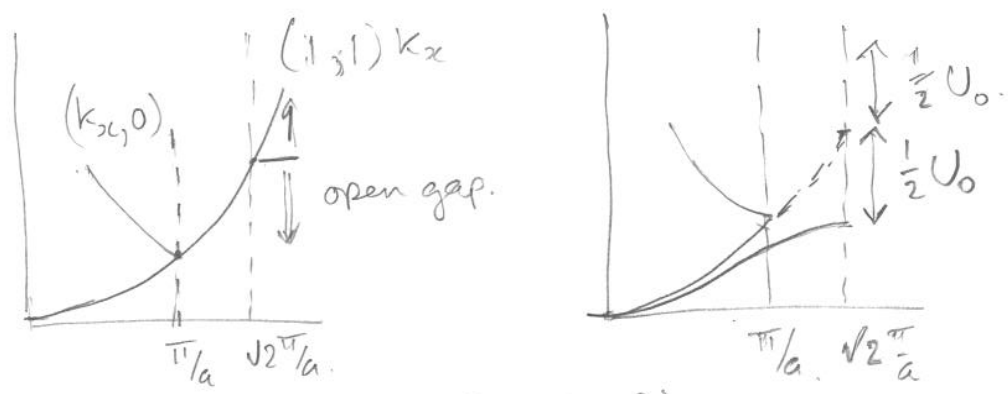 (1,1) kx
(kx,0)
open gap.
π/a
√2 π/a.
½ U₀.
½ U₀
π/a.
√2 π/a